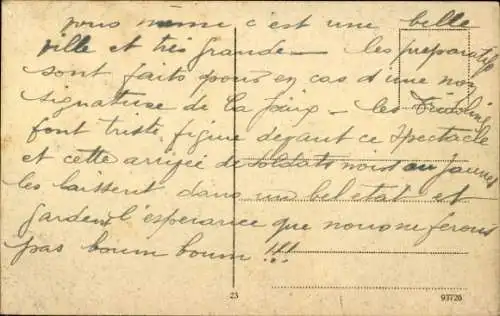 pour même c'est une belle
ville et très grande — les preparatifs
sont faits pour en cas d'une non
signature de la paix — les
font triste figure devant ce spectacle
et cette arrivée de soldats nous
les laissent dans un bel etat et
gardent l'esperance que nous ne ferons
pas boum boum !!!
23
93726